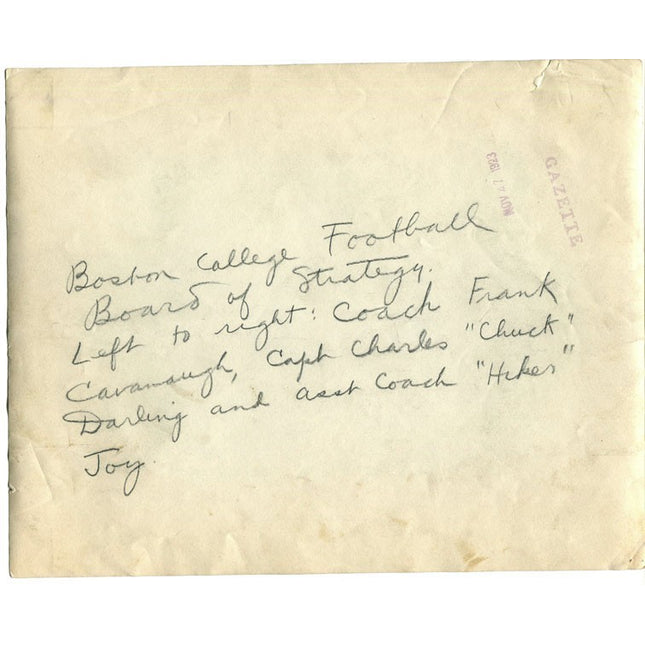 GAZETTE
NOV 17 1923
Boston College Football
Board of Strategy.
Left to right: Coach Frank
Cavanaugh, Capt Charles "Chuck"
Darling and asst Coach "Hiker"
Joy.